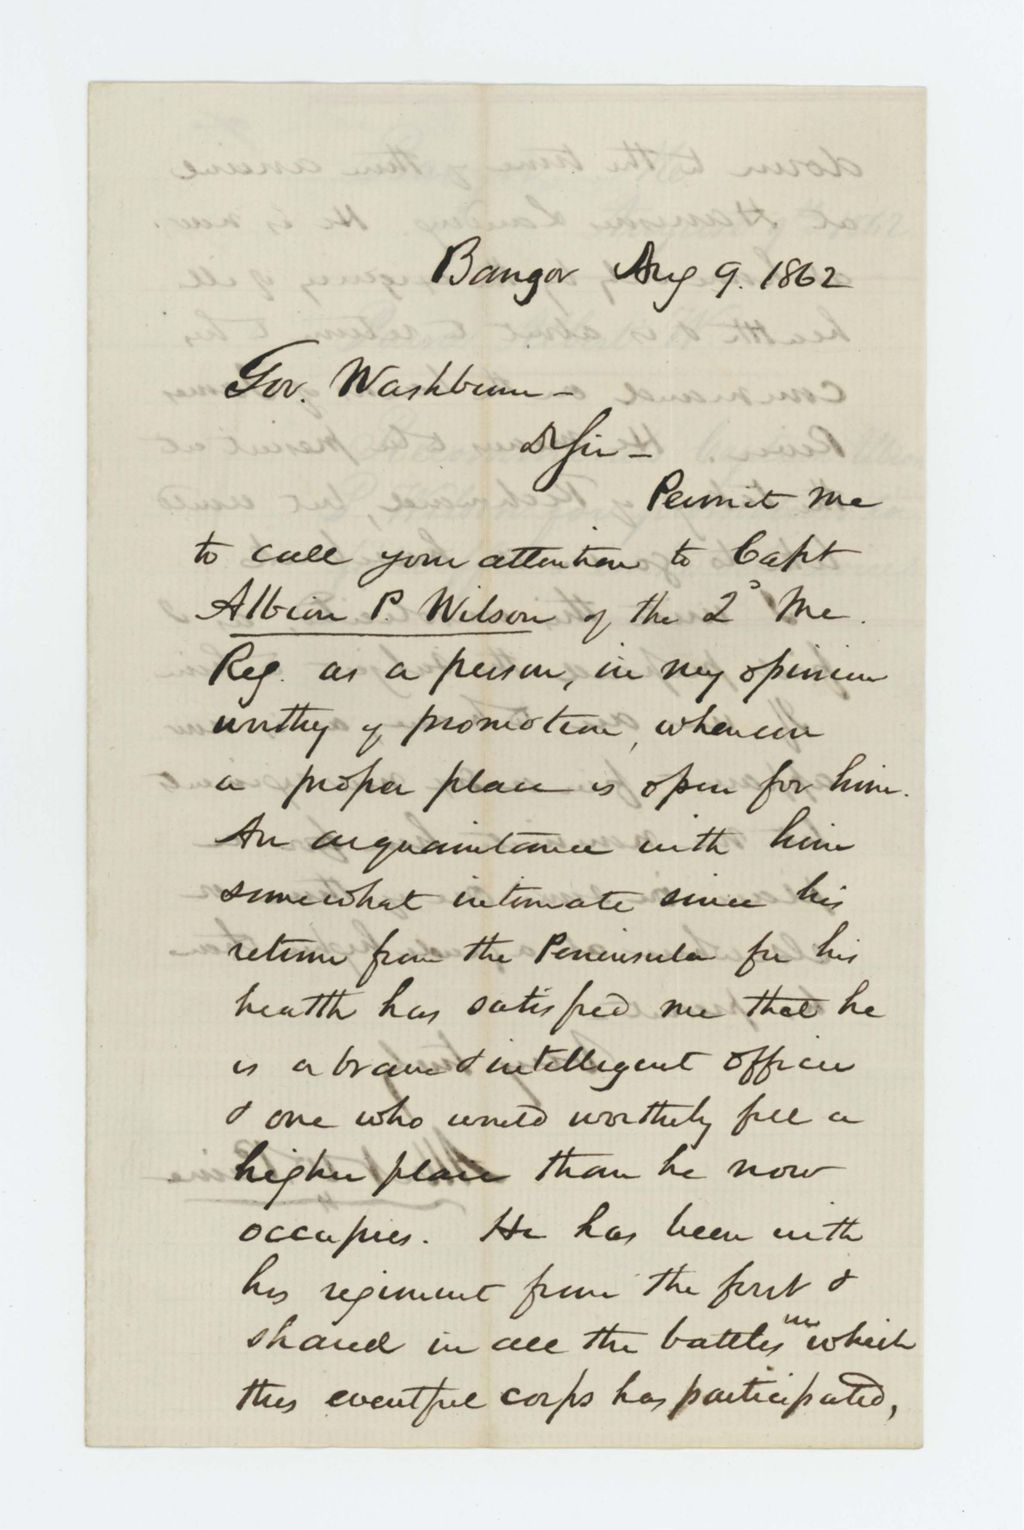 Bangor Aug 9. 1862
Gov. Washburn -
D Sir -
Permit me
to call your attention to Capt
Albion P. Wilson of the 2d Me.
Reg. as a person, in my opinion
worthy of promotion, whenever
a proper place is open for him.
An acquaintance with him
somewhat intimate since his
return from the Peninsula for his
health has satisfied me that he
is a brave & intelligent officer
& one who would worthily fill a
higher place than he now
occupies. He has been with
his regiment from the first &
shared in all the battles in which
this eventful corps has participated,